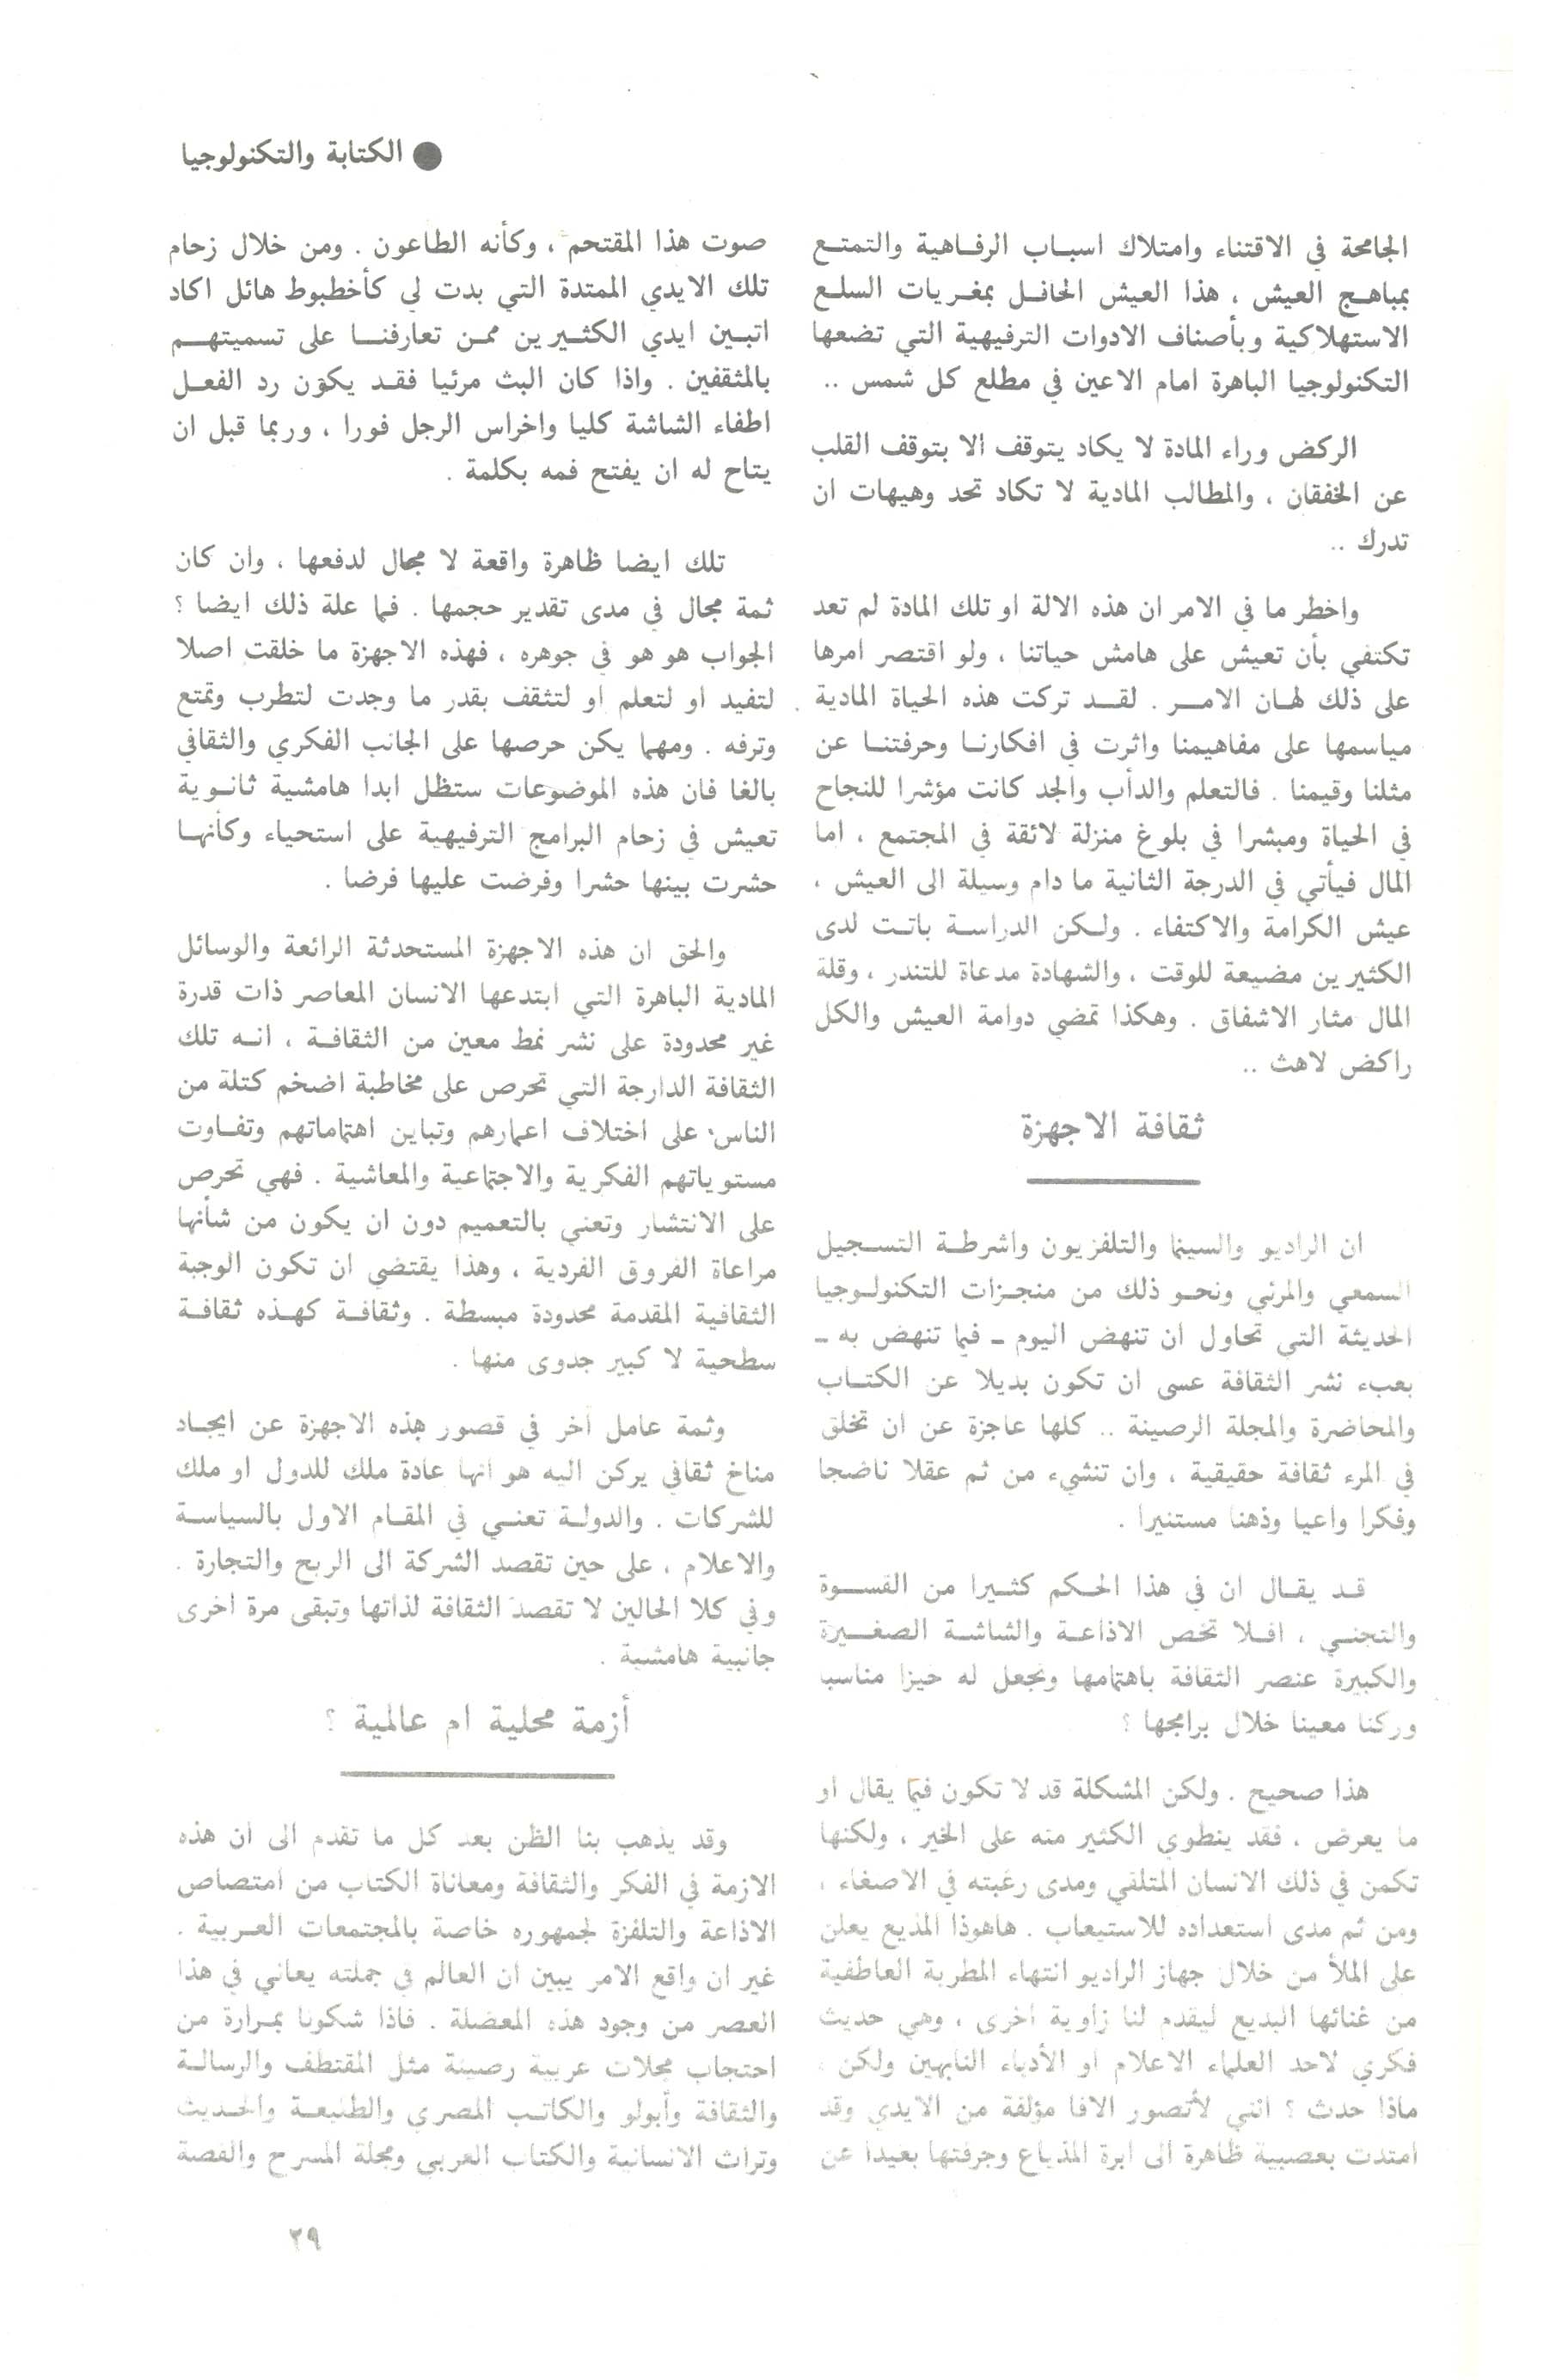 ● الكتابة والتكنولوجيا
الجامحة في الاقتناء وامتلاك اسباب الرفاهية والتمتع
بمباهج العيش ، هذا العيش الحافل بمغريات السلع
الاستهلاكية وبأصناف الادوات الترفيهية التي تضعها
التكنولوجيا الباهرة امام الاعين في مطلع كل شمس ..
الركض وراء المادة لا يكاد يتوقف الا بتوقف القلب
عن الخفقان ، والمطالب المادية لا تكاد تحد وهيهات ان
تدرك ..
واخطر ما في الامر ان هذه الالة او تلك المادة لم تعد
تكتفي بأن تعيش على هامش حياتنا ، ولو اقتصر امرها
على ذلك لهان الامر . لقد تركت هذه الحياة المادية
مياسمها على مفاهيمنا واثرت في افكارنا وحرفتنا عن
مثلنا وقيمنا . فالتعلم والدأب والجد كانت مؤشرا للنجاح
في الحياة ومبشرا في بلوغ منزلة لائقة في المجتمع ، اما
المال فيأتي في الدرجة الثانية ما دام وسيلة الى العيش ،
عيش الكرامة والاكتفاء . ولكن الدراسة باتت لدى
الكثيرين مضيعة للوقت ، والشهادة مدعاة للتندر ، وقلة
المال مثار الاشفاق . وهكذا تمضي دوامة العيش والكل
راكض لاهث ..
ثقافة الاجهزة
ان الراديو والسينما والتلفزيون واشرطة التسجيل
السمعي والمرئي ونحو ذلك من منجزات التكنولوجيا
الحديثة التي تحاول ان تنهض اليوم ـ فيما تنهض به ـ
بعبء نشر الثقافة عسى ان تكون بديلا عن الكتاب
والمحاضرة والمجلة الرصينة .. كلها عاجزة عن ان تخلق
في المرء ثقافة حقيقية ، وان تنشيء من ثم عقلا ناضجا
وفكرا واعيا وذهنا مستنيرا .
قد يقال ان في هذا الحكم كثيرا من القسوة
والتجني ، افلا تخص الاذاعة والشاشة الصغيرة
والكبيرة عنصر الثقافة باهتمامها وتجعل له حيزا مناسبا
وركنا معينا خلال برامجها ؟
هذا صحيح . ولكن المشكلة قد لا تكون فيما يقال او
ما يعرض ، فقد ينطوي الكثير منه على الخير ، ولكنها
تكمن في ذلك الانسان المتلقي ومدى رغبته في الاصغاء ،
ومن ثم مدى استعداده للاستيعاب . هاهوذا المذيع يعلن
على الملأ من خلال جهاز الراديو انتهاء المطربة العاطفية
من غنائها البديع ليقدم لنا زاوية اخرى ، وهي حديث
فكري لاحد العلماء الاعلام او الأدباء النابهين ولكن ،
ماذا حدث ؟ انني لأتصور الافا مؤلفة من الايدي وقد
امتدت بعصبية ظاهرة الى ابرة المذياع وجرفتها بعيدا عن
صوت هذا المقتحم ، وكأنه الطاعون . ومن خلال زحام
تلك الايدي الممتدة التي بدت لي كأخطبوط هائل اكاد
اتبين ايدي الكثيرين ممن تعارفنا على تسميتهم
بالمثقفين . واذا كان البث مرئيا فقد يكون رد الفعل
اطفاء الشاشة كليا واخراس الرجل فورا ، وربما قبل ان
يتاح له ان يفتح فمه بكلمة .
تلك ايضا ظاهرة واقعة لا مجال لدفعها ، وان كان
ثمة مجال في مدى تقدير حجمها . فما علة ذلك ايضا ؟
الجواب هو هو في جوهره ، فهذه الاجهزة ما خلقت اصلا
لتفيد او لتعلم او لتثقف بقدر ما وجدت لتطرب وتمتع
وترفه . ومهما يكن حرصها على الجانب الفكري والثقافي
بالغا فان هذه الموضوعات ستظل ابدا هامشية ثانوية
تعيش في زحام البرامج الترفيهية على استحياء وكأنها
حشرت بينها حشرا وفرضت عليها فرضا .
والحق ان هذه الاجهزة المستحدثة الرائعة والوسائل
المادية الباهرة التي ابتدعها الانسان المعاصر ذات قدرة
غير محدودة على نشر نمط معين من الثقافة ، انه تلك
الثقافة الدارجة التي تحرص على مخاطبة اضخم كتلة من
الناس على اختلاف اعمارهم وتباين اهتماماتهم وتفاوت
مستوياتهم الفكرية والاجتماعية والمعاشية . فهي تحرص
على الانتشار وتعني بالتعميم دون ان يكون من شأنها
مراعاة الفروق الفردية ، وهذا يقتضي ان تكون الوجبة
الثقافية المقدمة محدودة مبسطة . وثقافة كهذه ثقافة
سطحية لا كبير جدوى منها .
وثمة عامل آخر في قصور هذه الاجهزة عن ايجاد
مناخ ثقافي يركن اليه هو انها عادة ملك للدول او ملك
للشركات . والدولة تعني في المقام الاول بالسياسة
والاعلام ، على حين تقصد الشركة الى الربح والتجارة .
وفي كلا الحالين لا تقصد الثقافة لذاتها وتبقى مرة اخرى
جانبية هامشية .
أزمة محلية ام عالمية ؟
وقد يذهب بنا الظن بعد كل ما تقدم الى ان هذه
الازمة في الفكر والثقافة ومعاناة الكتاب من امتصاص
الاذاعة والتلفزة لجمهوره خاصة بالمجتمعات العربية .
غير ان واقع الامر يبين ان العالم في جملته يعاني في هذا
العصر من وجود هذه المعضلة . فاذا شكونا بمرارة من
احتجاب مجلات عربية رصينة مثل المقتطف والرسالة
والثقافة وأبولو والكاتب المصري والطليعة والحديث
وتراث الانسانية والكتاب العربي ومجلة المسرح والقصة
٢٩